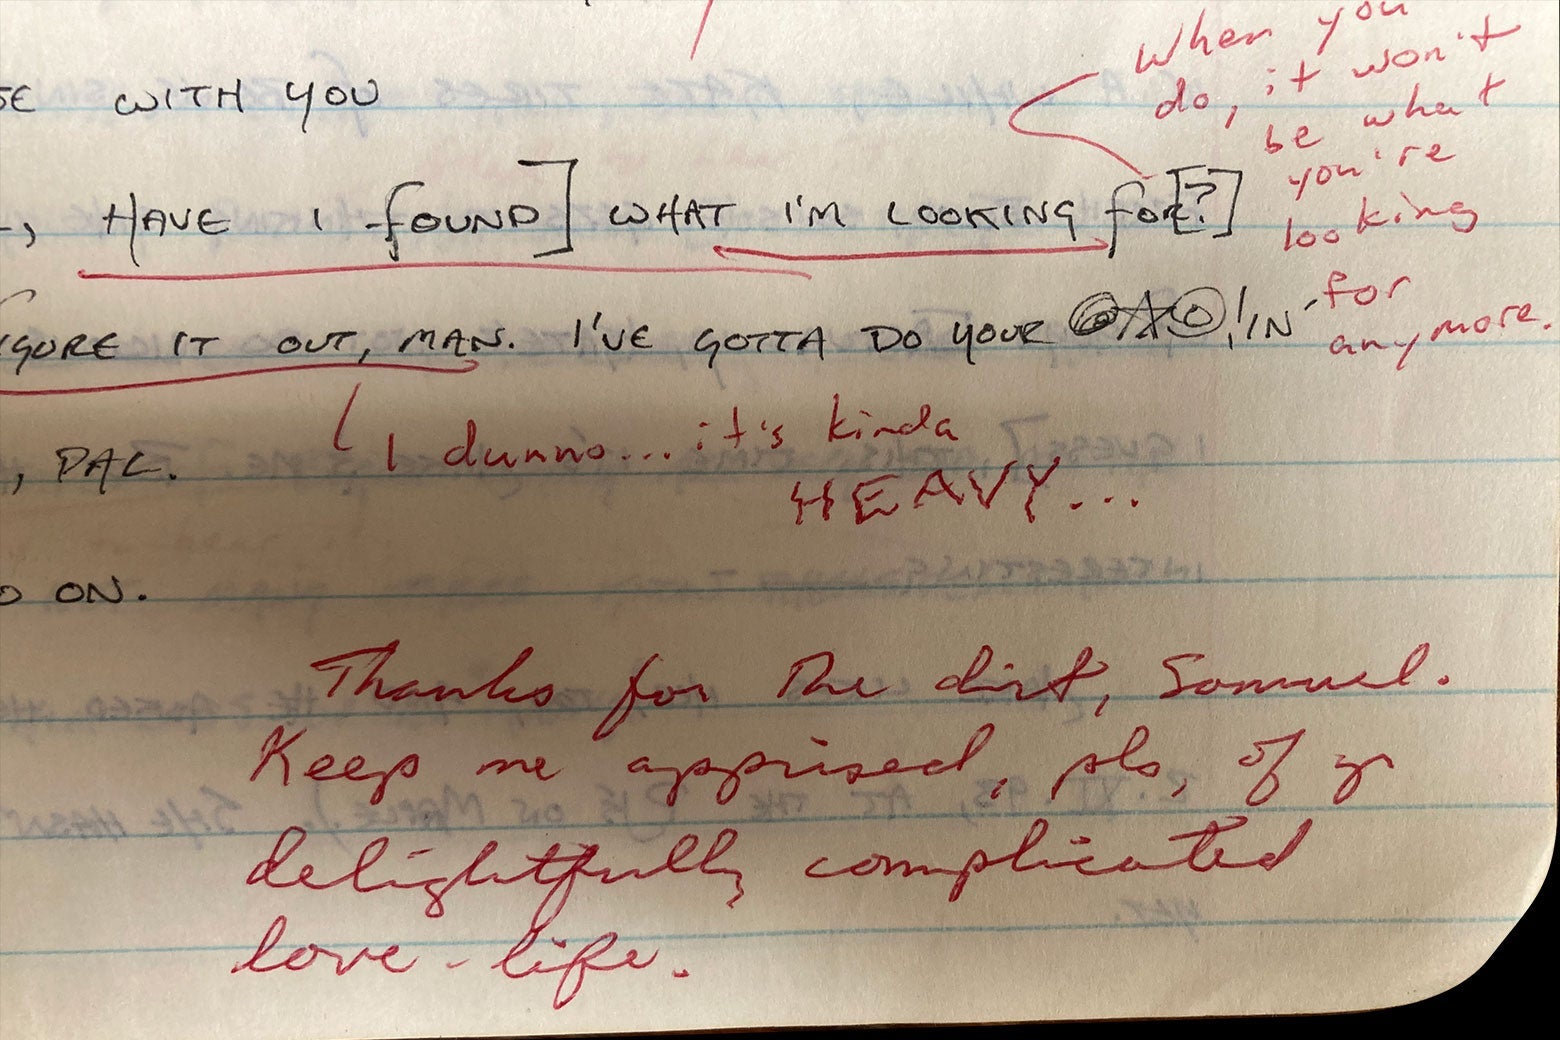 WITH YOU
when you
do, it won't
be what
you're
looking
for
anymore.
HAVE I found] WHAT I'M LOOKING for[?]
IT OUT, MAN. I'VE GOTTA DO YOUR @*@!IN'
I dunno... it's kinda
HEAVY...
, PAL.
ON.
Thanks for the dirt, Samuel.
Keep me apprised, pls, of yr
delightfully complicated
love-life.